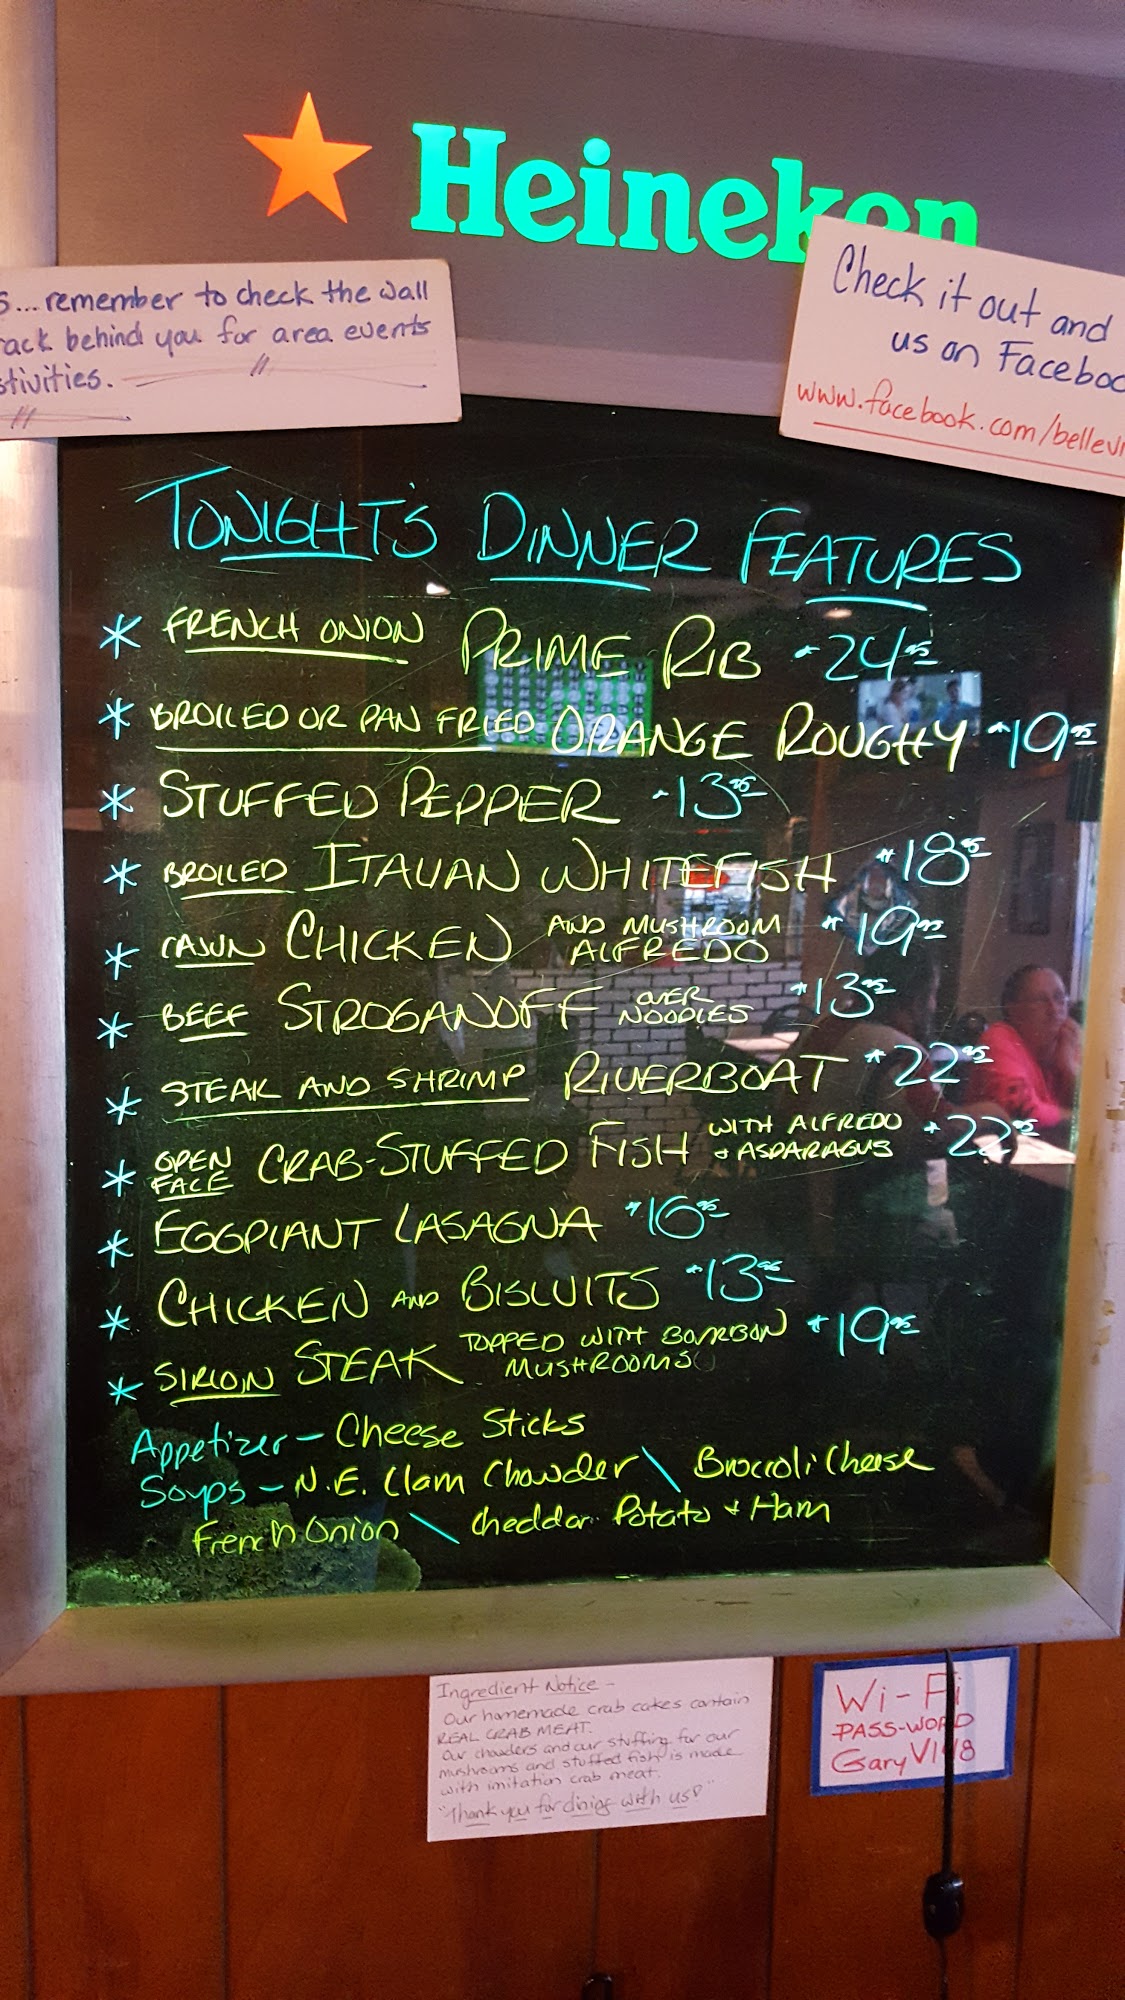 Heineken
...remember to check the wall
rack behind you for area events
Check it out and
us on Facebook
www.facebook.com/bellev
TONIGHT'S DINNER FEATURES
* FRENCH ONION PRIME RIB $24.95
* BROILED OR PAN FRIED ORANGE ROUGHY $19.95
* STUFFED PEPPER $13.95
* BROILED ITALIAN WHITEFISH $18.95
* CAJUN CHICKEN AND MUSHROOM ALFREDO $19.95
* BEEF STROGANOFF OVER NOODLES $13.95
* STEAK AND SHRIMP RIVERBOAT $22.95
* OPEN FACE CRAB-STUFFED FISH WITH ALFREDO + ASPARAGUS $22.95
* EGGPLANT LASAGNA $16.95
* CHICKEN AND BISCUITS $13.95
* SIRLOIN STEAK TOPPED WITH BOURBON MUSHROOMS $19.95
Appetizer - Cheese Sticks
Soups - N.E. Clam Chowder \ Broccoli Cheese
French Onion \ Cheddar Potato + Ham
Ingredient Notice -
Our homemade crab cakes contain
REAL CRAB MEAT.
Our chowders and our stuffing for our
mushrooms and stuffed fish is made
with imitation crab meat.
"Thank you for dining with us!"
Wi-Fi
PASS-WORD